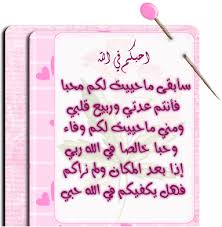 احبكم في الله
سأبقى ماحييت لكم محبا
فانتم عدتي وربيع قلبي
ومني ماحييت لكم وفاء
وحبا خالصا في الله ربي
إذا بعد المكان ولم نراكم
فهل يكفيكم في الله حبي